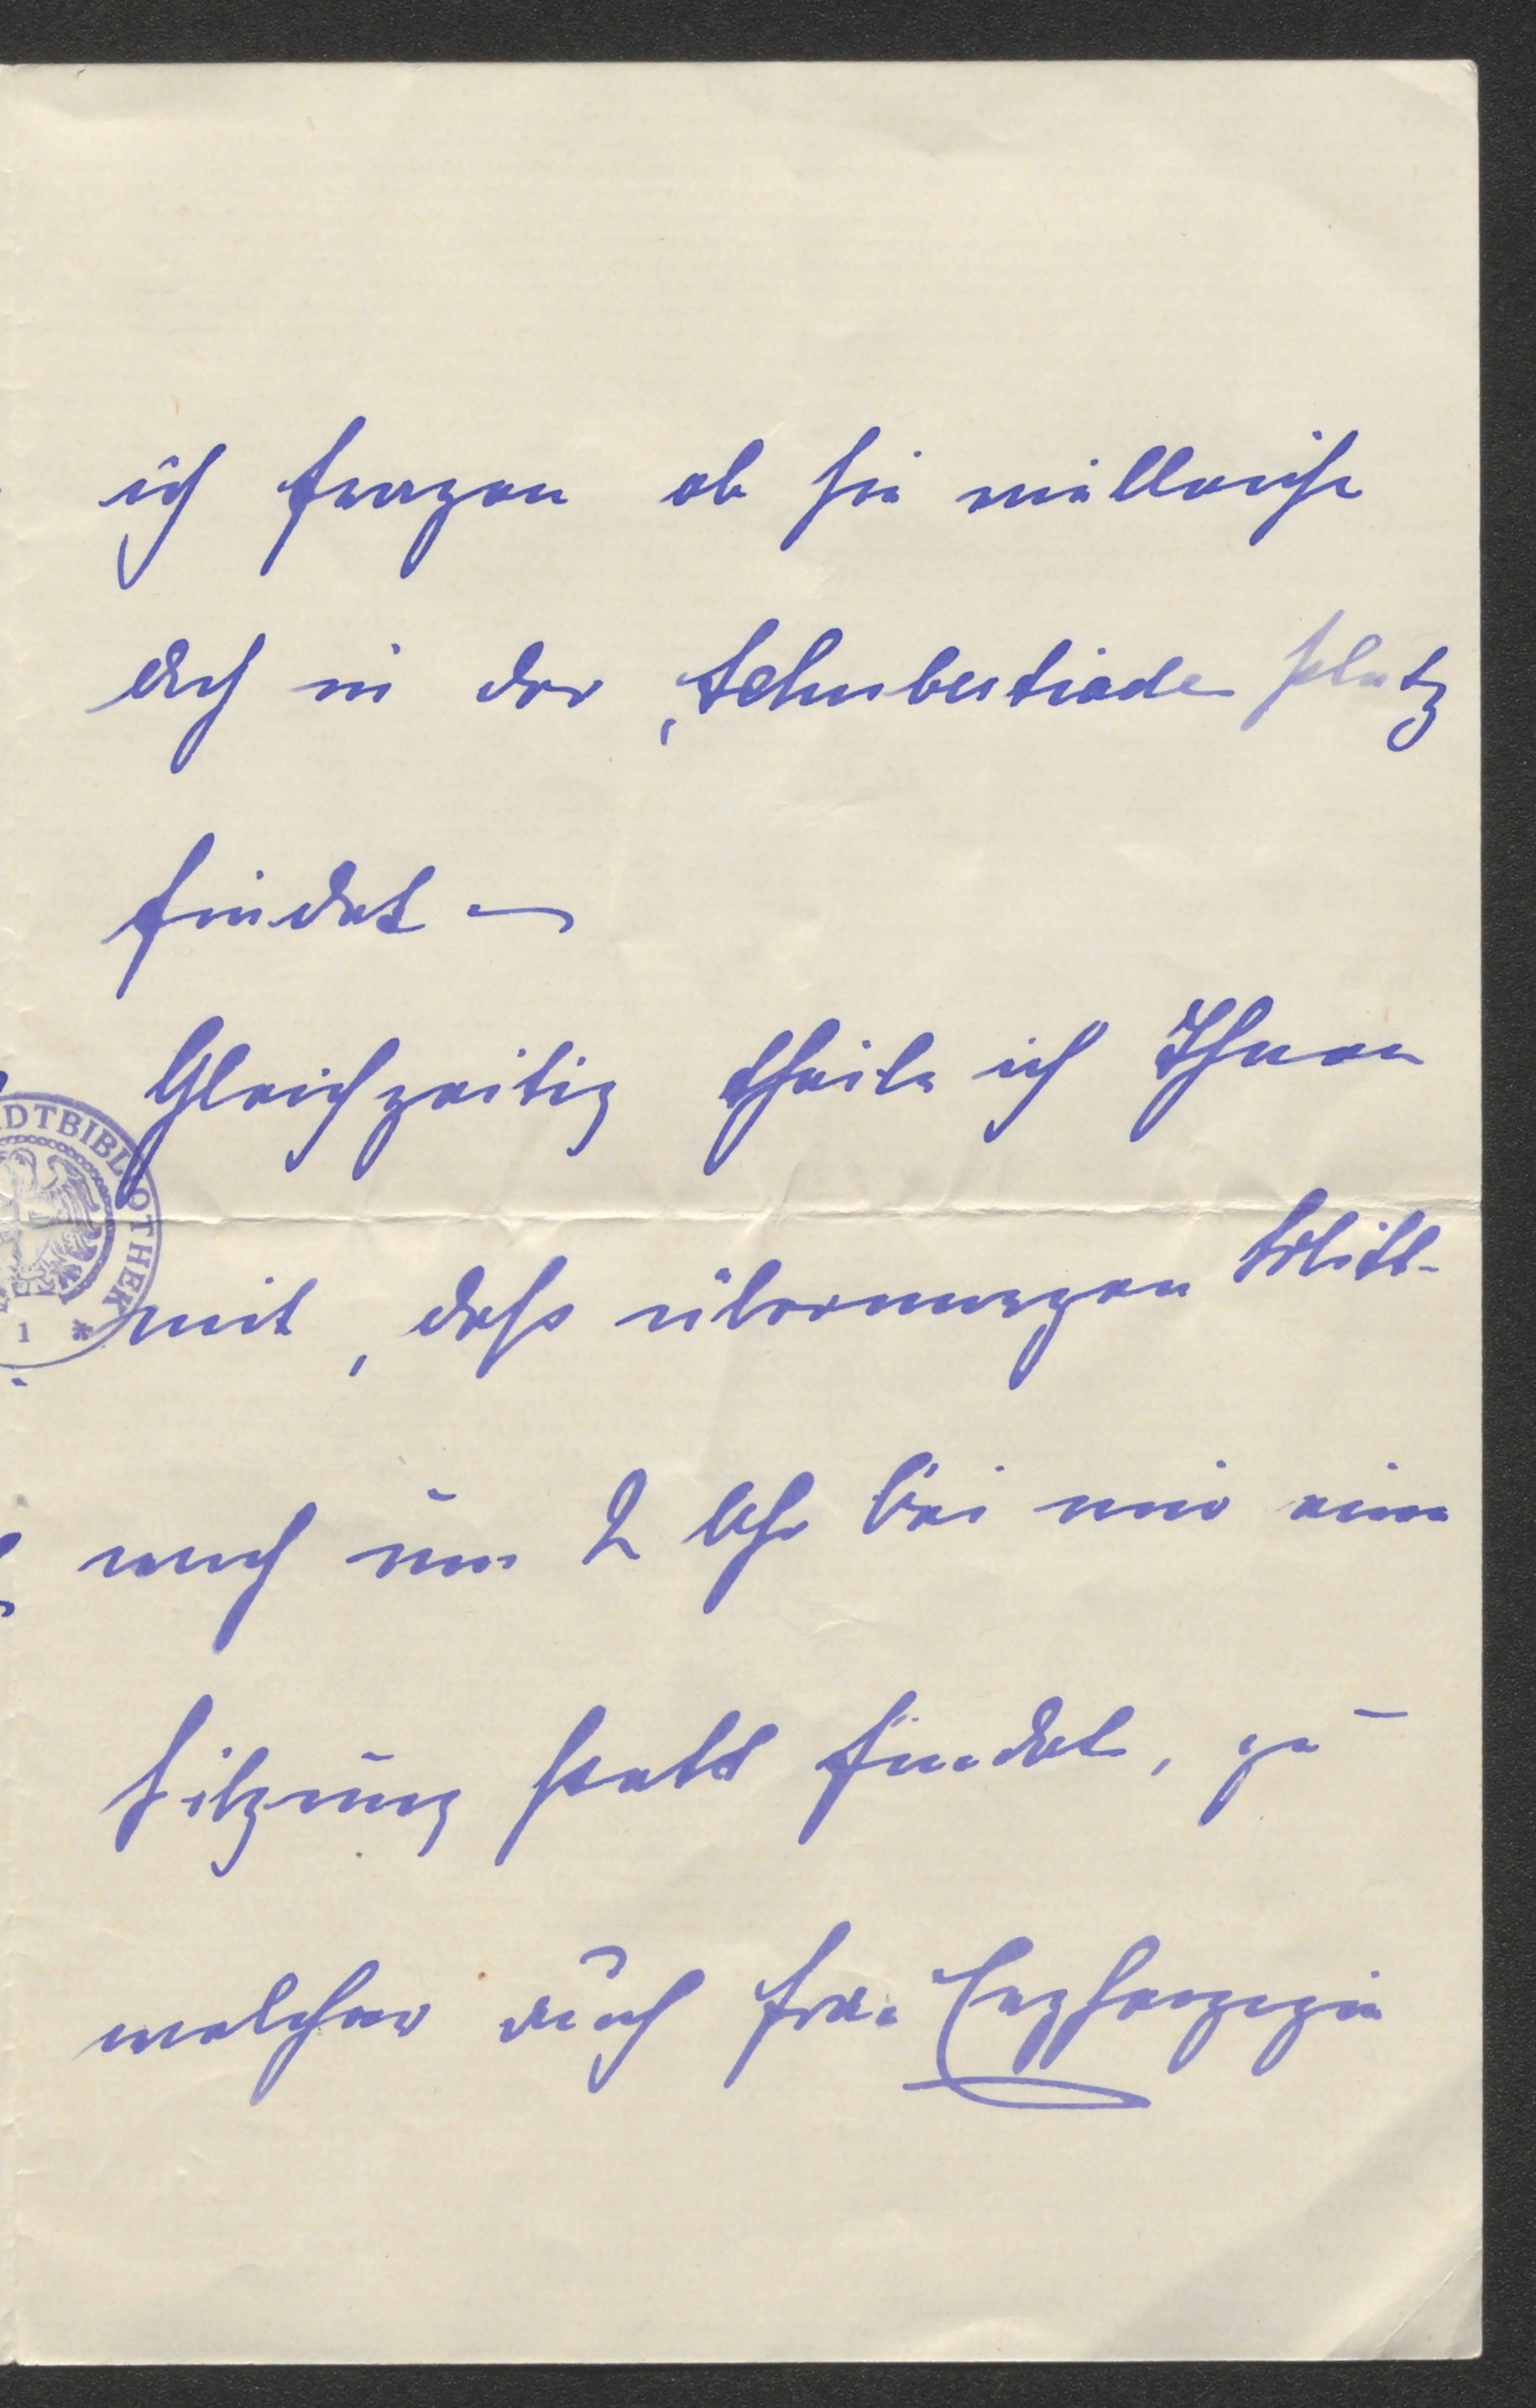 ich fragen ob sie vielleicht
doch in der „Schubertiade Platz
findet —
Gleichzeitig theile ich Ihnen
mit, dass übermorgen Mitt-
woch um 2 Uhr bei mir eine
Sitzung statt findet, zu
welcher auch Frau Erzherzogin
ADTBIBLIOTHEK
1 *